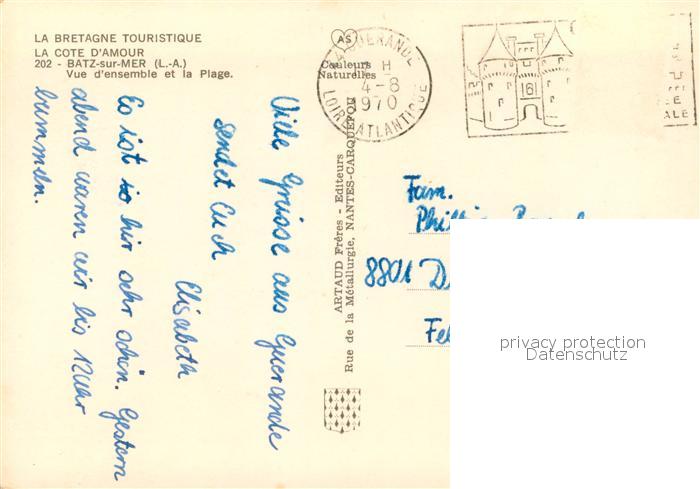 LA BRETAGNE TOURISTIQUE
LA COTE D'AMOUR
202 - BATZ-sur-MER (L.-A.)
Vue d'ensemble et la Plage.
AS
Couleurs
Naturelles
GUERANDE
H
4-8
970
LOIRE ATLANTIQUE
LE
ALE
Viele Grüsse aus Guerande
sendet Euch
Elisabeth
Es ist so hir sehr schön. Gestern
abend waren wir bis 12 Uhr
bummeln.
ARTAUD Frères - Editeurs
Rue de la Métallurgie, NANTES-CARQUEFOU
Fam.
8801 D
Fe
privacy protection
Datenschutz